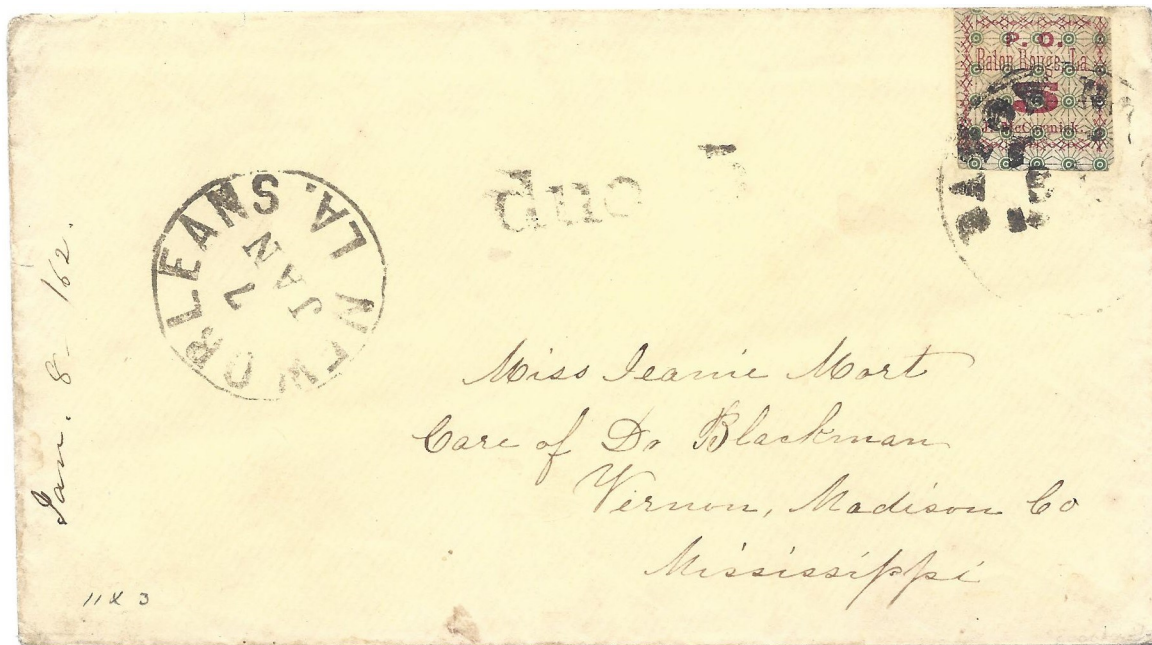 P. O.
Baton Rouge, La.
5
McCormick.
due 5
NEW ORLEANS. LA.
JAN
7
Jan. 8 - '62.
Miss Jeanie Mort
Care of Dr Blackman
Vernon, Madison Co
Mississippi
11 X 3